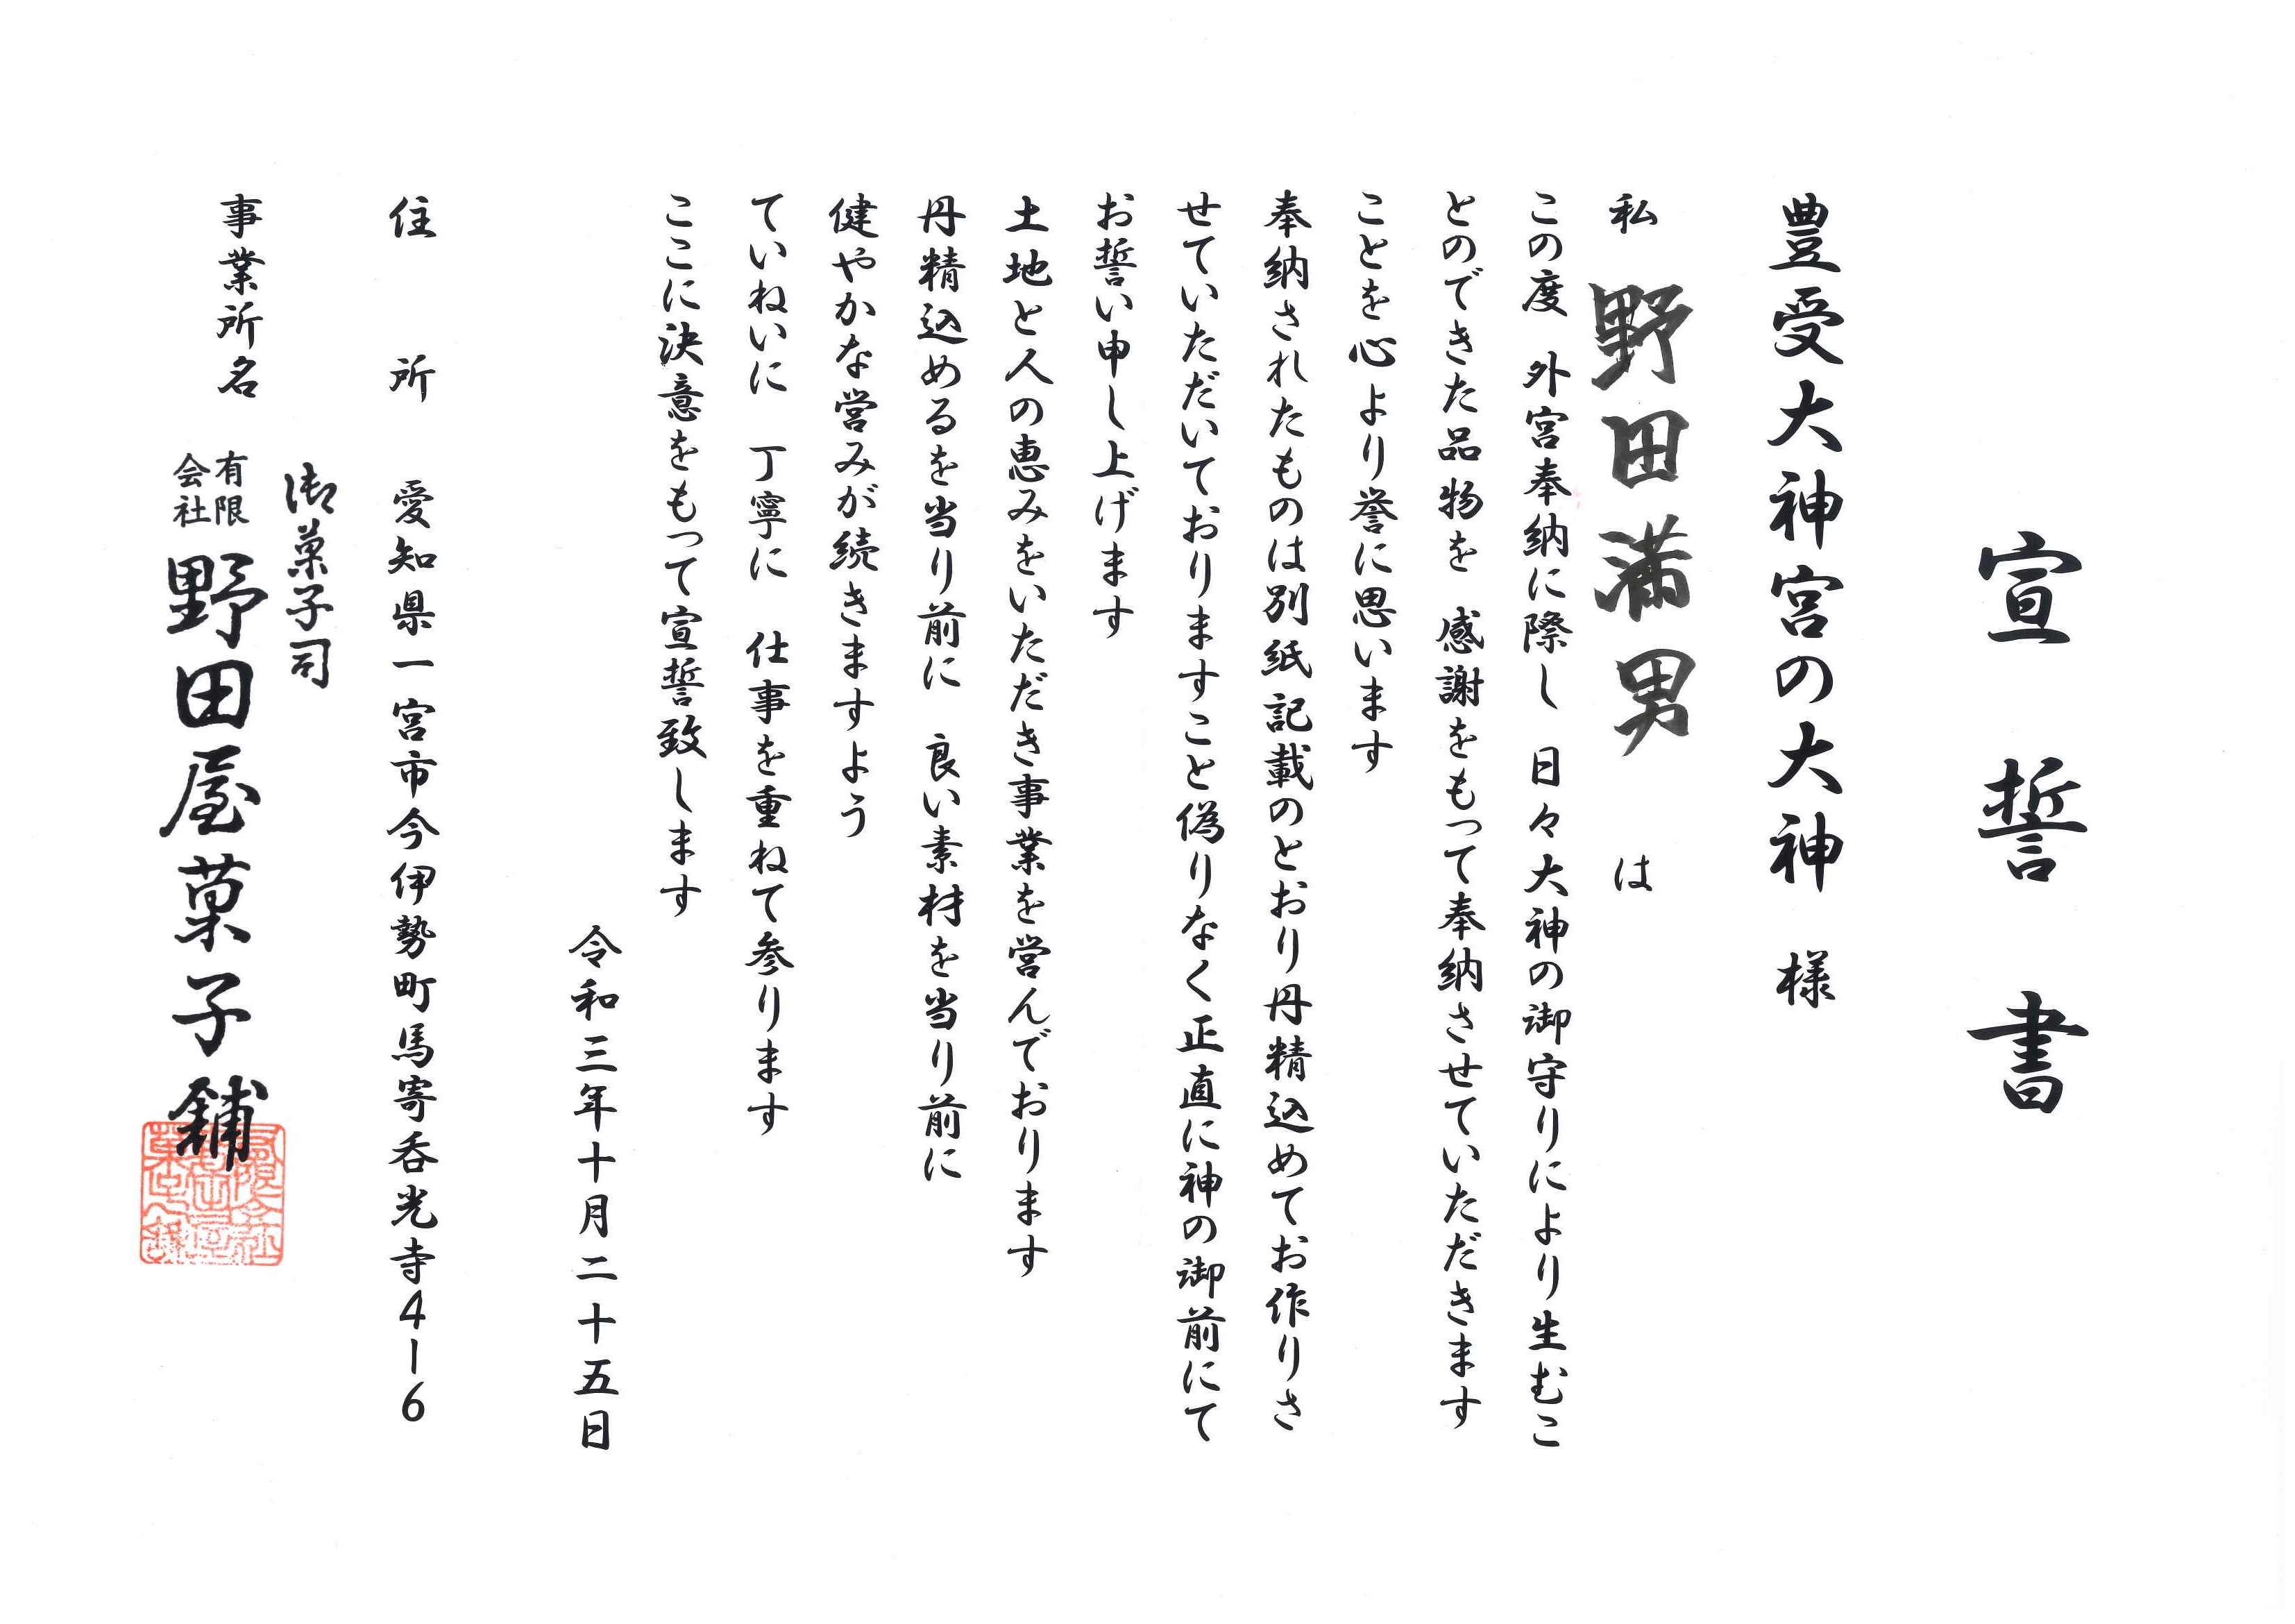 宣誓書
豊受大神宮の大神　様
私　野田満男　は
この度　外宮奉納に際し　日々大神の御守りにより生むこ
とのできた品物を　感謝をもって奉納させていただきます
ことを心より誉に思います
奉納されたものは別紙記載のとおり丹精込めてお作りさ
せていただいておりますこと偽りなく正直に神の御前にて
お誓い申し上げます
土地と人の恵みをいただき事業を営んでおります
丹精込めるを当り前に　良い素材を当り前に
健やかな営みが続きますよう
ていねいに　丁寧に　仕事を重ねて参ります
ここに決意をもって宣誓致します
令和三年十月二十五日
住所　愛知県一宮市今伊勢町馬寄呑光寺4-6
御菓子司
事業所名　有限会社　野田屋菓子舗